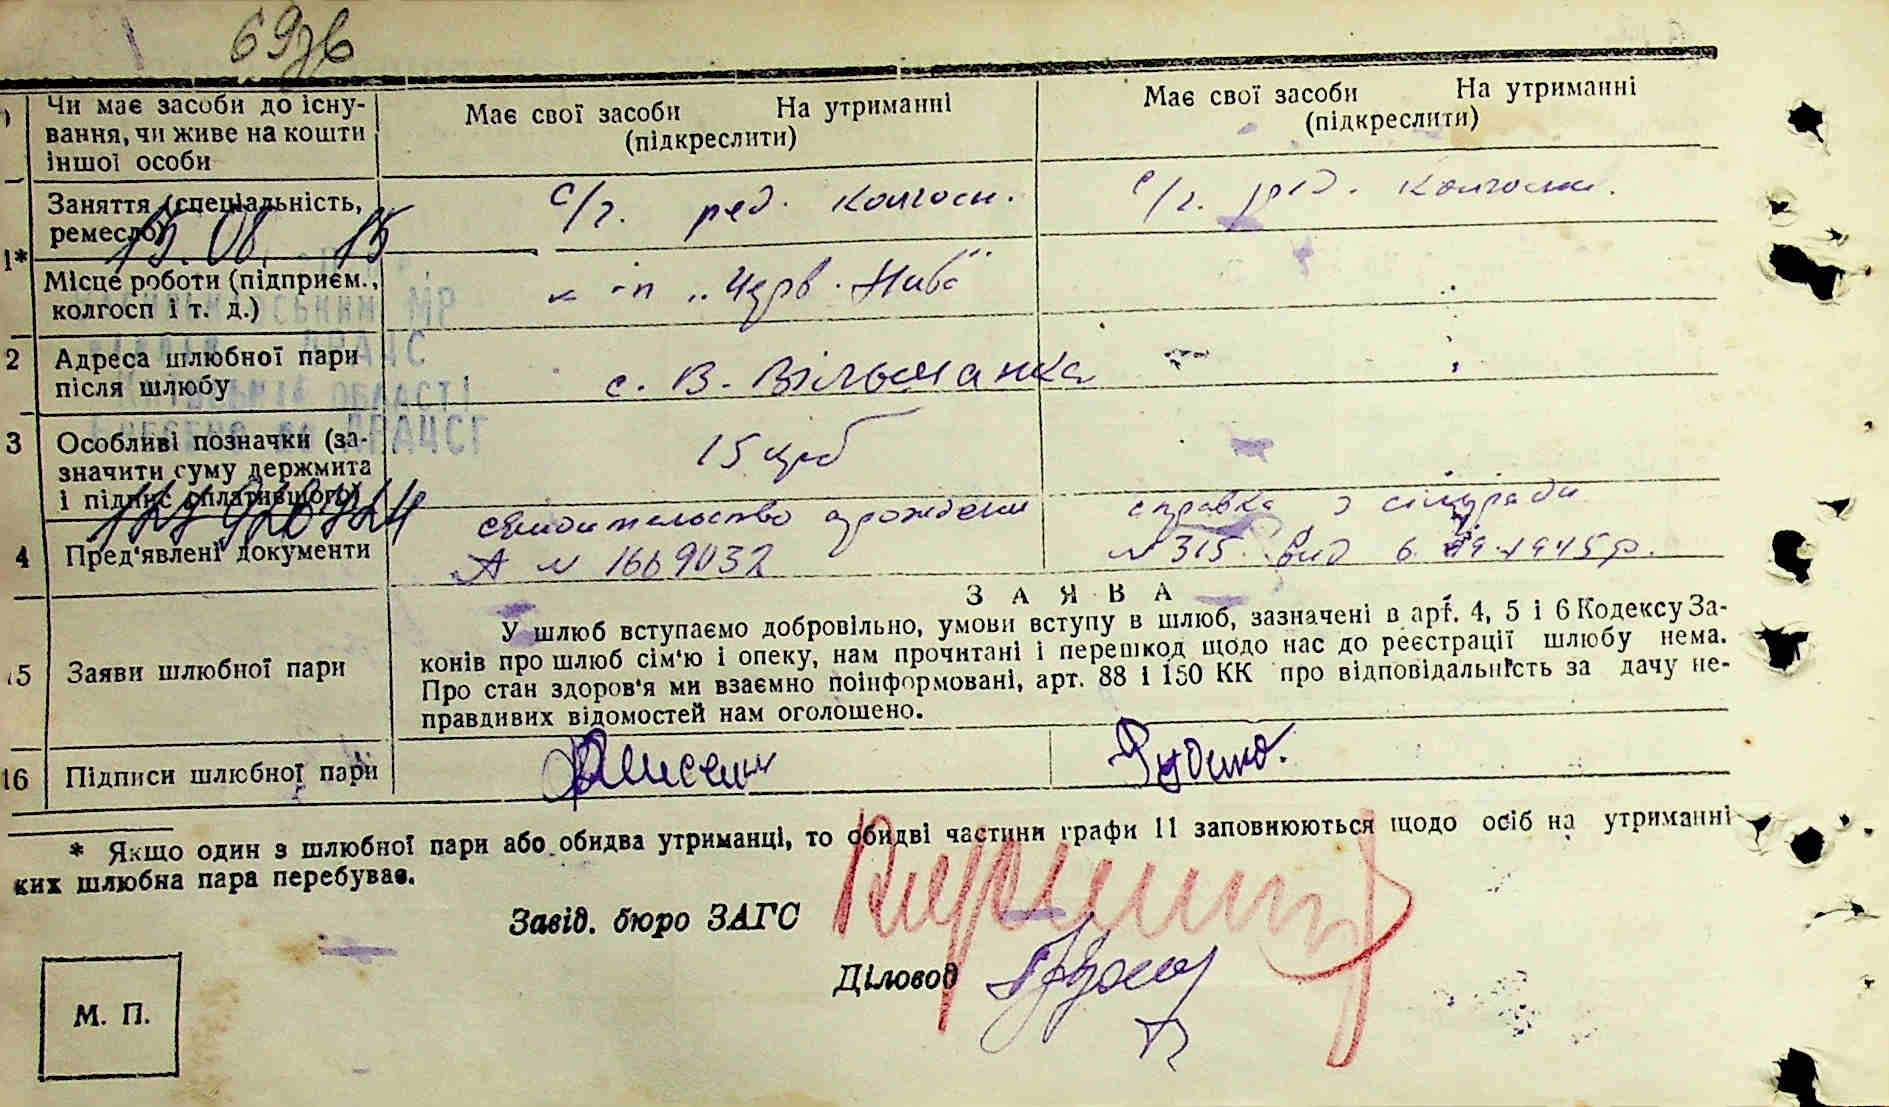 69зв
Чи має засоби до існу-
вання, чи живе на кошти
іншої особи
Має свої засоби На утриманні
(підкреслити)
Має свої засоби На утриманні
(підкреслити)
Заняття (спеціальність,
ремесло)
с/г. ряд. колгосп.
с/г. ряд. колгосп.
15.08. 15
1*
Місце роботи (підприєм.,
колгосп і т. д.)
к-п „Черв. Нива"
2
Адреса шлюбної пари
після шлюбу
с. В. Вільшанка
3
Особливі позначки (за-
значити суму держмита
і підпис сплатившого)
15 крб
4
Пред'явлені документи
свидетельство о рождении
А № 1669032
справка з сільради
№ 315 вид 6. 1945р.
МР
ДРАЦС
ОБЛАСТІ
ДРАЦСГ
15
Заяви шлюбної пари
ЗАЯВА
У шлюб вступаємо добровільно, умови вступу в шлюб, зазначені в арт. 4, 5 і 6 Кодексу За-
конів про шлюб сім'ю і опеку, нам прочитані і перешкод щодо нас до реєстрації шлюбу нема.
Про стан здоров'я ми взаємно поінформовані, арт. 88 і 150 КК про відповідальність за дачу не-
правдивих відомостей нам оголошено.
16
Підписи шлюбної пари
* Якщо один з шлюбної пари або обидва утриманці, то обидві частини графи 11 заповнюються щодо осіб на утриманні
ких шлюбна пара перебуває.
Завід. бюро ЗАГС
Діловод
М. П.